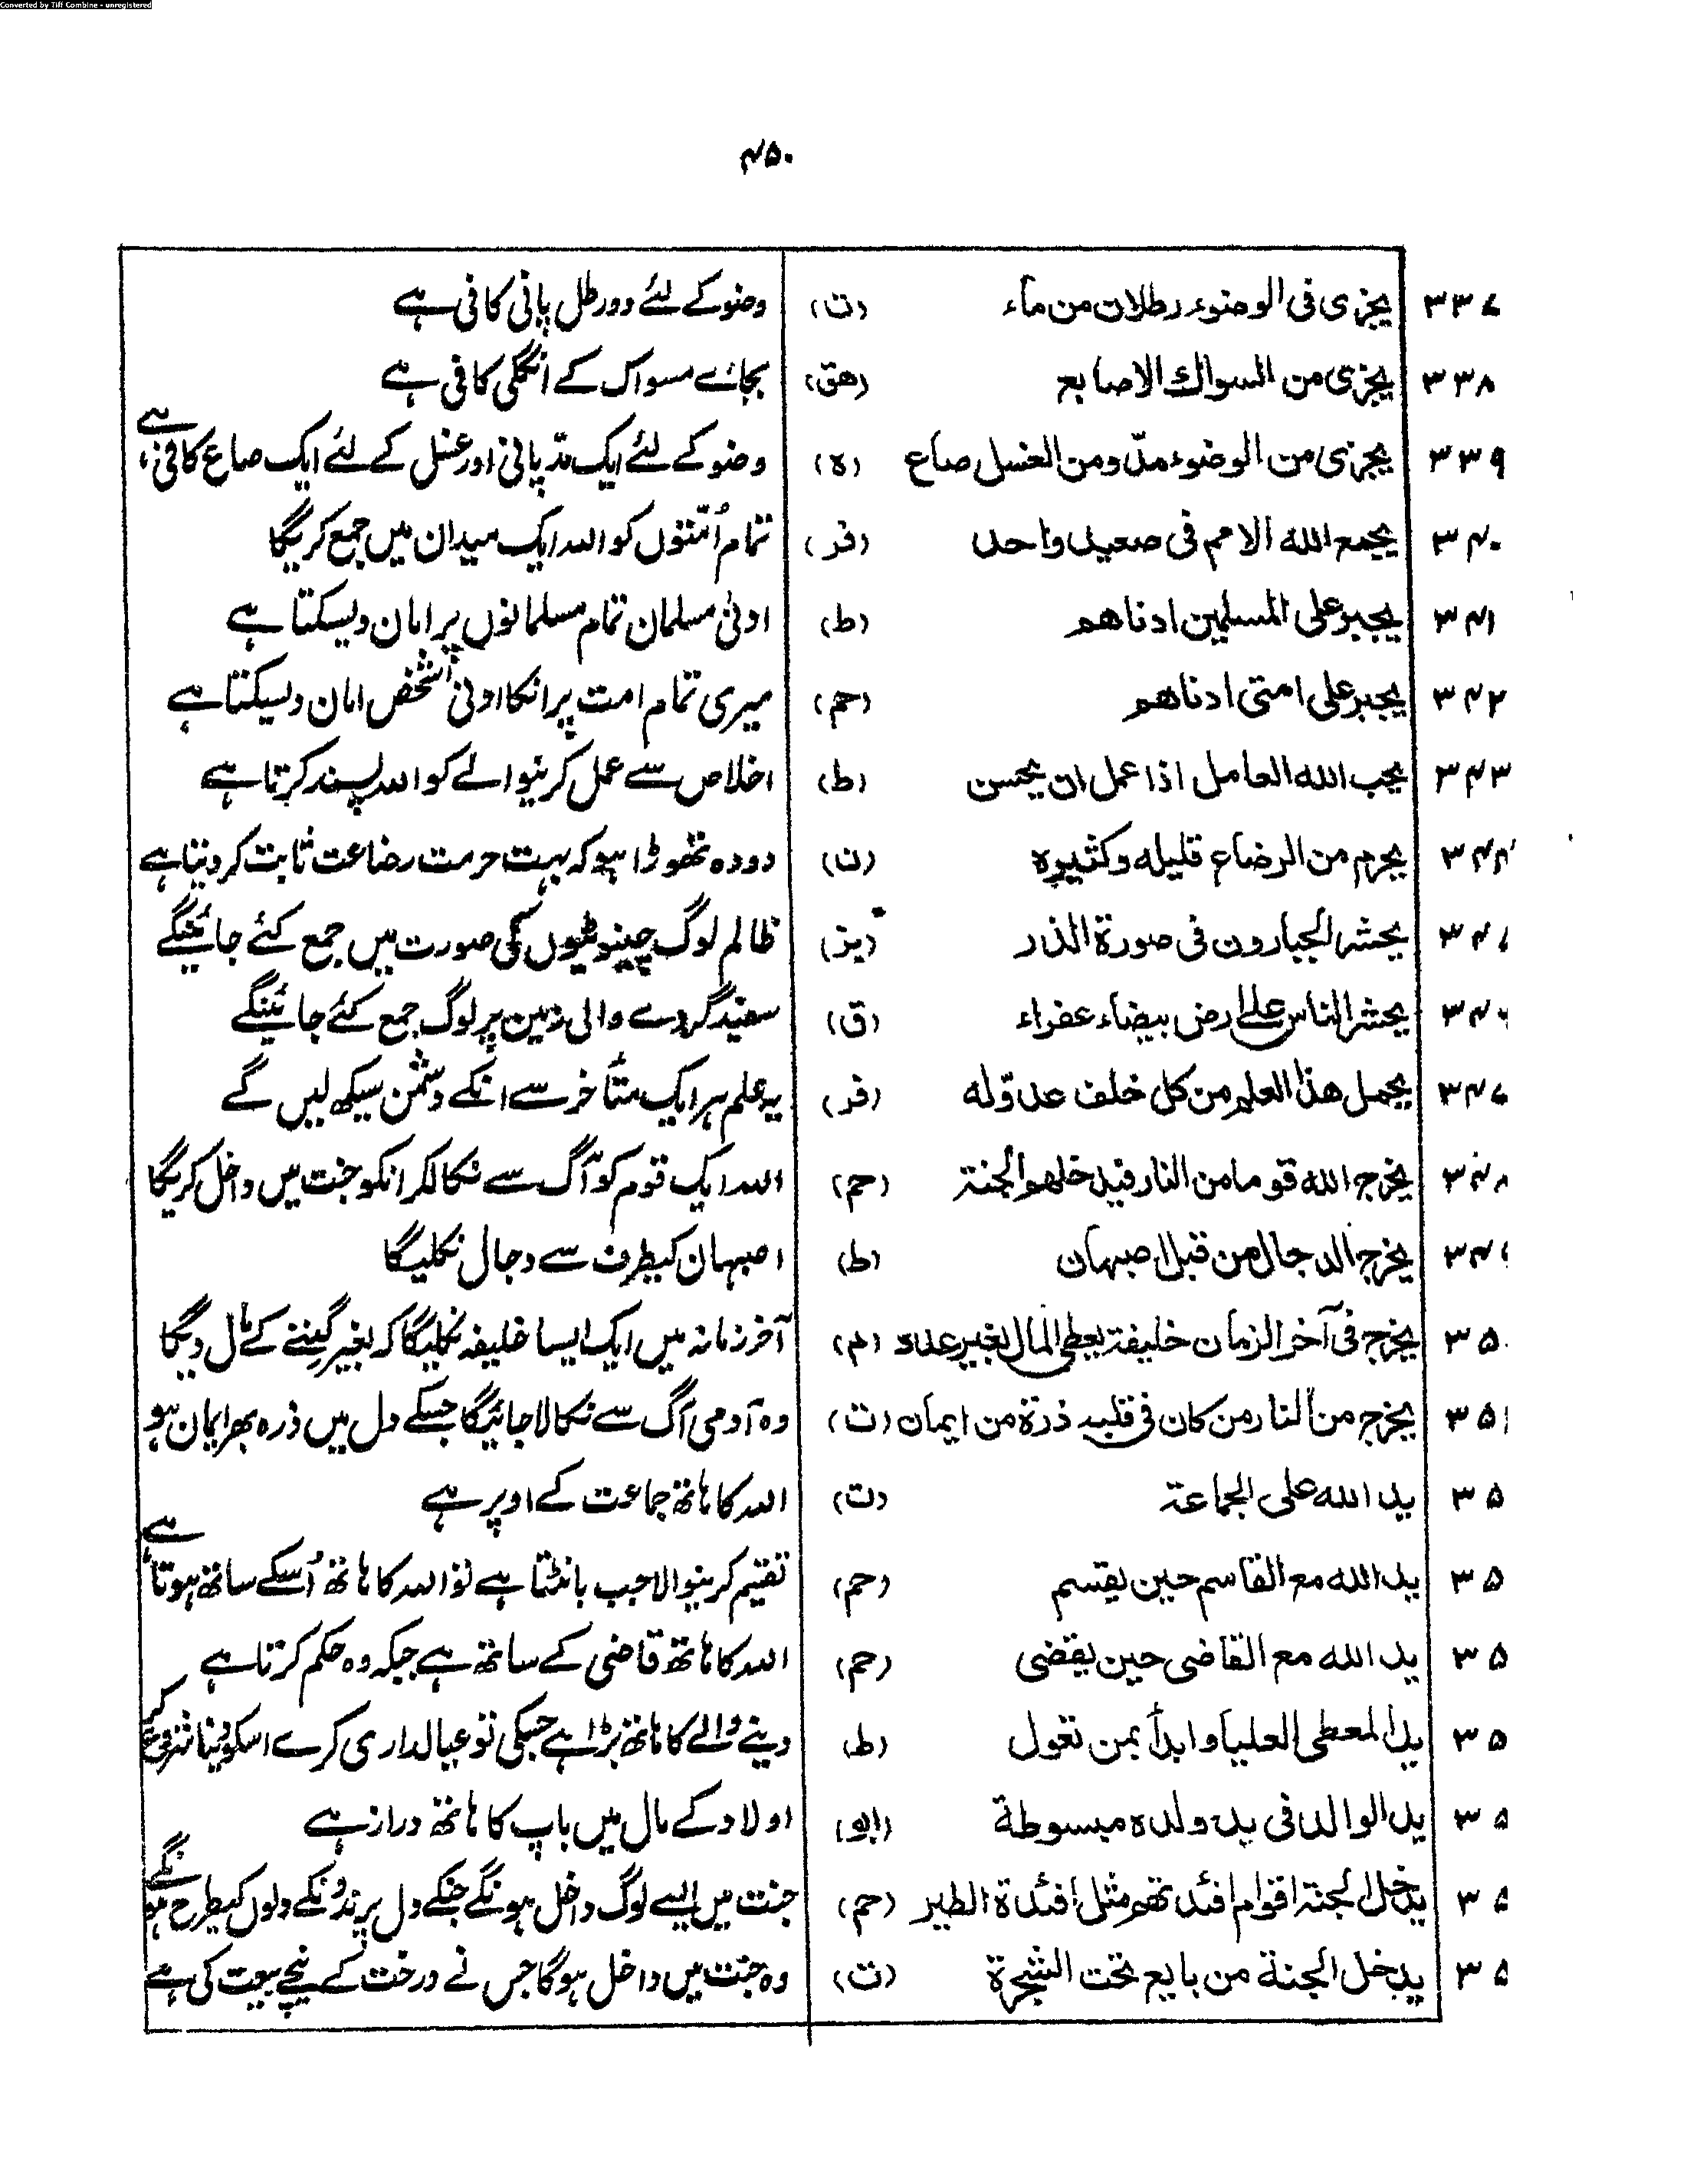 Converted by Tiff Combine - unregistered
۴۵۰
۳۳۷ یجزی فی الوضوء رطلان من ماء (ت) وضو کے لئے دو رطل پانی کافی ہے
۳۳۸ یجزی من السواك الاصابع (هق) بجائے مسواک کے انگلی کافی ہے
۳۳۹ یجزی من الوضوء مدّ ومن الغسل صاع (ہ) وضو کے لئے ایک مد پانی اور غسل کے لئے ایک صاع کافی ہے
۳۴۰ یجمع الله الامم فی صعید واحد (فر) تمام اُمتّوں کو اللہ ایک میدان میں جمع کریگا
۳۴۱ یجیر علی المسلمین ادناهم (ط) ادنیٰ مسلمان تمام مسلمانوں پر امان دیسکتا ہے
۳۴۲ یجیر علی امتی ادناهم (حم) میری تمام امت پر انکا ادنیٰ شخص امان دلیسکتا ہے
۳۴۳ یحب الله العامل اذا عمل ان یحسن (ط) اخلاص سے عمل کرنیوالے کو اللہ پسند کرتا ہے
۳۴۴ یحرم من الرضاع قلیله وکثیره (ن) دودہ تھوڑا ہو کہ بہت حرمت رضاعت ثابت کر دیتا ہے
۳۴ یحشر الجبارون فی صورة الذر (بز) ظالم لوگ چینوٹیوں کی صورت میں جمع کئے جائینگے
۳۴ یحشر الناس علی ارض بیضاء عفراء (ق) سفید گردے والی زمین پر لوگ جمع کئے جائینگے
۳۴۷ یحمل هذا العلم من کل خلف عدوّله (فر) یہ علم ہر ایک متأخر سے انکے دشمن سیکھ لیں گے
۳۴۸ یخرج الله قوما من النار فیدخلهم الجنة (حم) اللہ ایک قوم کو آگ سے نکالکر انکو جنت میں داخل کریگا
۳۴ یخرج الدجال من قبل اصبهان (ط) اصبہان کیطرف سے دجال نکلیگا
۳۵۰ یخرج فی آخر الزمان خلیفة یعطی المال بغیر عدد (م) آخر زمانہ میں ایک ایسا خلیفہ نکلیگا کہ بغیر گننے کے مال دیگا
۳۵۱ یخرج من النار من کان فی قلبه ذرة من ایمان (ت) وہ آدمی آگ سے نکالا جائیگا جسکے دل میں ذرہ بھر ایمان ہو
۳۵ ید الله علی الجماعة (ت) اللہ کا ہاتھ جماعت کے اوپر ہے
۳۵ ید الله مع القاسم حین یقسم (حم) تقسیم کرنیوالا جب بانٹتا ہے تو اللہ کا ہاتھ اُسکے ساتھ ہوتا ہے
۳۵ ید الله مع القاضی حین یقضی (حم) اللہ کا ہاتھ قاضی کے ساتھ ہے جبکہ وہ حکم کرتا ہے
۳۵ ید المعطی العلیا وابدأ بمن تعول (ط) دینے والے کا ہاتھ بڑا ہے جسکی تو عیالداری کرے اسکو دینا شروع کر
۳۵ ید الوالد فی ید ولده مبسوطة (ابو) اولاد کے مال میں باپ کا ہاتھ دراز ہے
۳۵ یدخل الجنة اقوام افئدتهم مثل افئدة الطیر (حم) جنت میں ایسے لوگ داخل ہونگے جنکے دل پرندونکے دلوں کیطرح ہونگے
۳۵ یدخل الجنة من بایع تحت الشجرة (ت) وہ جنت میں داخل ہوگا جس نے درخت کے نیچے بیعت کی ہے